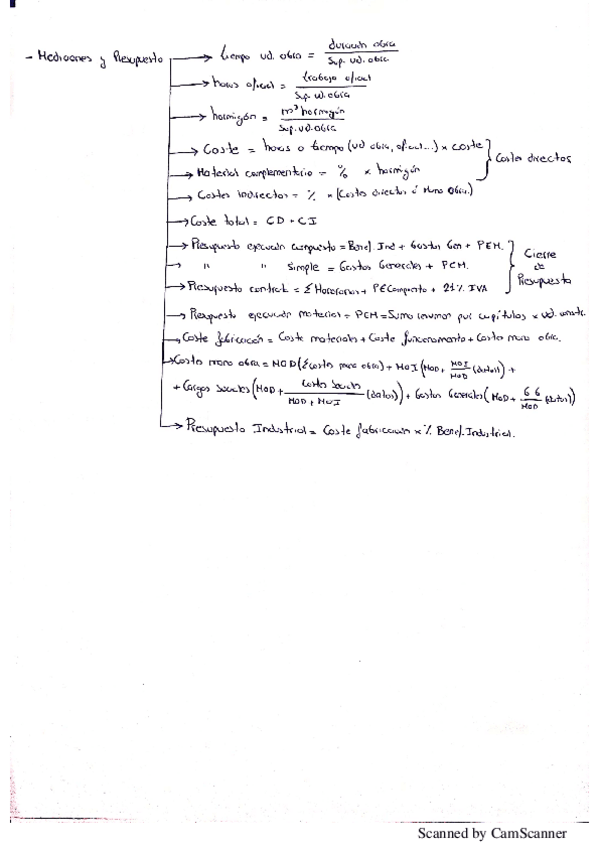 - Mediciones y Presupuesto → tiempo ud. obra = duración obra / Sup. ud. obra
→ horas oficial = trabajo oficial / Sup. ud. obra
→ hormigón = m³ hormigón / Sup. ud. obra
→ Coste = horas o tiempo (ud obra, oficial...) x coste
→ Material complementario = % x hormigón
} Costes directos
→ Costes indirectos = % x (Costes directos ó Mano Obra.)
→ Coste total = CD + CI
→ Presupuesto ejecución compuesto = Benef. Ind + Gastos Gen + PEM.
→ " " simple = Gastos Generales + PEM.
→ Presupuesto contrat. = Σ Honorarios + PECompuesto + 21% IVA
} Cierre de Presupuesto
→ Presupuesto ejecución material = PEM = Suma por capítulos x ud.
→ Coste fabricación = Coste materiales + Coste funcionamiento + Costes mano obra.
→ Costes mano obra = MOD (Σ costes mano obra) + MOI (MOD + MOI / MOD (datos)) +
+ Cargas sociales (MOD + Costes Sociales / MOD + MOI (datos)) + Gastos Generales (MOD + GG / MOD (datos))
→ Presupuesto Industrial = Coste fabricación x % Benef. Industrial.
Scanned by CamScanner